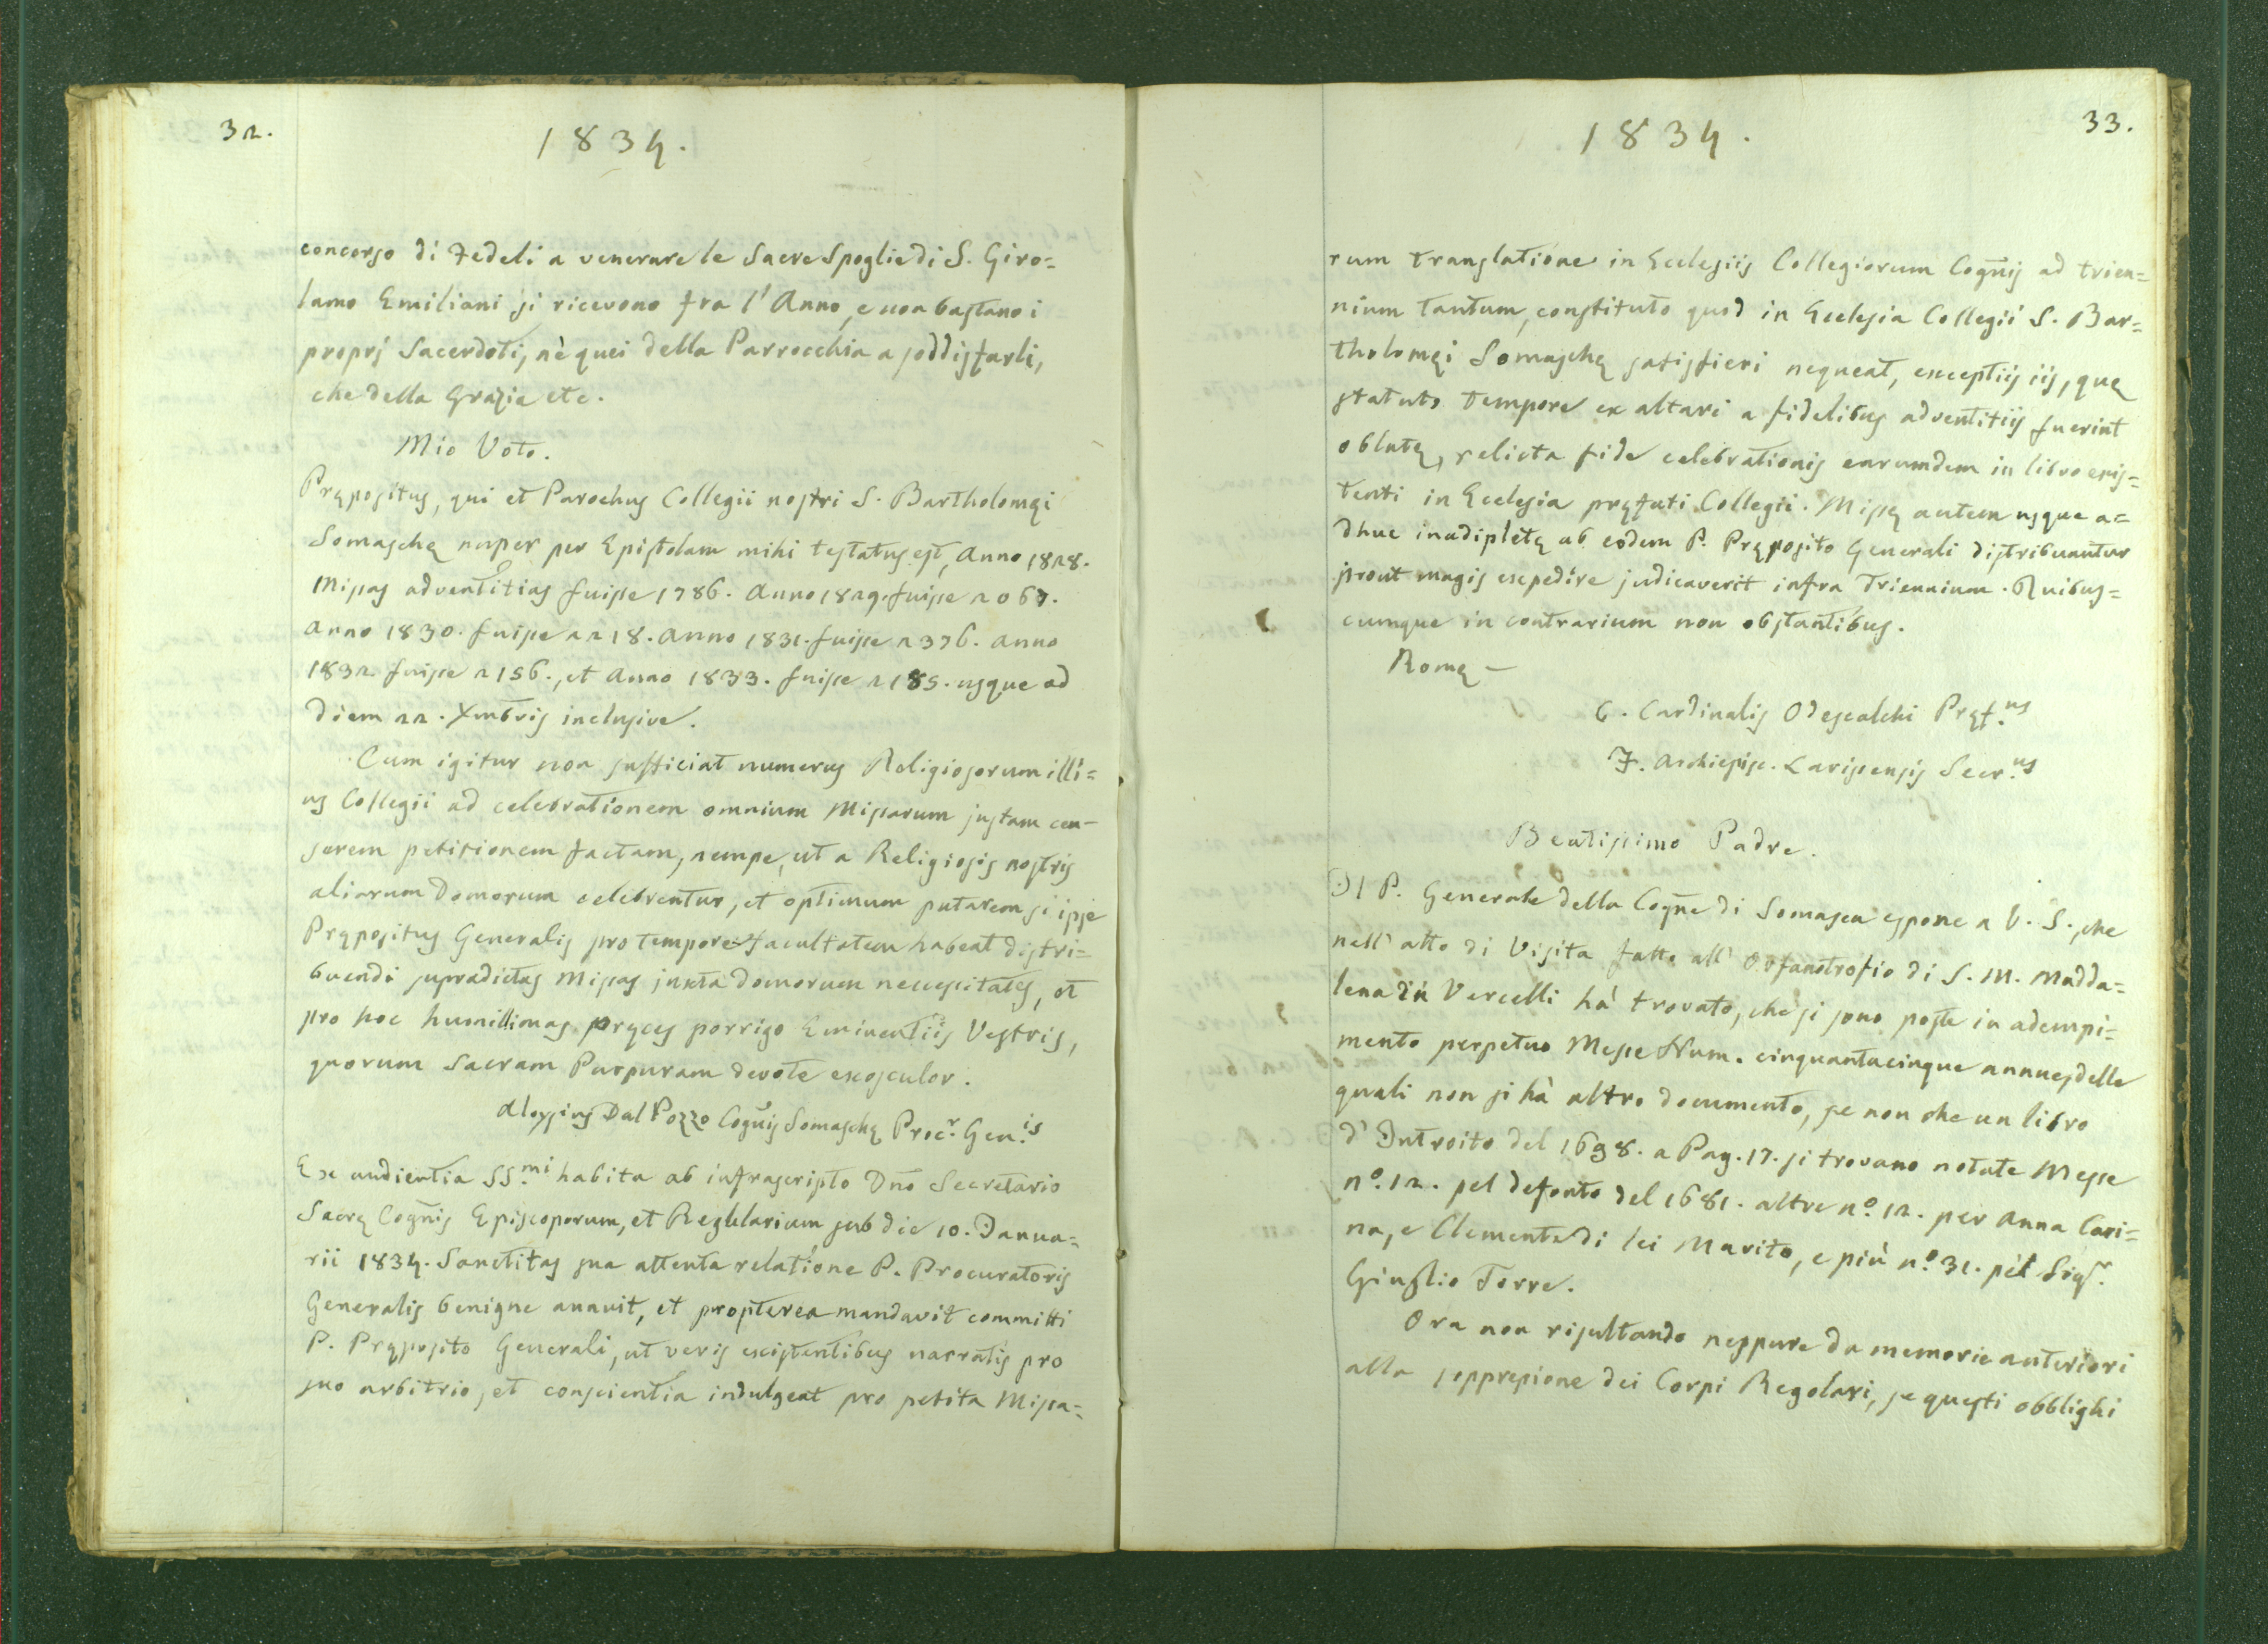 32.
1834.
concorso di Fedeli a venerare le Sacre Spoglie di S. Giro=
lamo Emiliani si ricevono fra l'Anno, e non bastano i
proprj Sacerdoti, nè quei della Parrocchia a soddisfarli,
che della Grazia etc.
Mio Voto.
Prępositus, qui et Parochus Collegii nostri S. Bartholomęi
Somaschę nuper per Epistolam mihi testatus est, Anno 1828.
Missas adventitias fuisse 1786. Anno 1829. fuisse 2067.
Anno 1830. fuisse 2218. Anno 1831. fuisse 2376. Anno
1832. fuisse 2156., et Anno 1833. fuisse 2185. usque ad
diem 22. Xmbris inclusive.
Cum igitur non sufficiat numerus Religiosorum illi=
us Collegii ad celebrationem omnium Missarum justam cen-
serem petitionem factam, nempe, ut a Religiosis nostris
aliarum Domorum celebrentur, et optimum putarem si ipse
Prępositus Generalis pro tempore facultatem habeat distri=
buendi supradictas Missas juxta domorum necessitates, et
pro hoc humillimas pręces porrigo Eminentiis Vestris,
quorum Sacram Purpuram devote exosculor.
Aloysius Dal Pozzo Cog̃nis Somaschę Proc.r Gen.is
Ex audientia SS.mi habita ab infrascripto Dño Secretario
Sacrę Cog̃nis Episcoporum, et Regularium sub die 10. Janua=
rii 1834. Sanctitas sua attenta relatione P. Procuratoris
Generalis benigne annuit, et propterea mandavit committi
P. Pręposito Generali, ut veris existentibus narratis pro
suo arbitrio, et conscientia indulgeat pro petita Missa=
33.
1834.
rum translatione in Ecclesiis Collegiorum Cog̃nis ad trien=
nium tantum, constituto quod in Ecclesia Collegii S. Bar=
tholomęi Somaschę satisfieri nequeat, exceptiis iis, quę
statuto tempore ex altari a fidelibus adventitiis fuerint
oblatę, relicta fide celebrationis earumdem in libro exis=
tenti in Ecclesia pręfati Collegii. Missę autem usque a=
dhuc inadipletę ab eodem P. Pręposito Generali distribuantur
prout magis expedire judicaverit infra Triennium. Quibus=
cumque in contrarium non obstantibus.
Romę -
C. Cardinalis Odescalchi Pręf.us
F. Archiepisc. Larissensis Secr.us
Beatissimo Padre.
Il P. Generale della Cog̃ne di Somasca espone a V. S., che
nell'atto di Visita fatto all'Orfanotrofio di S. M. Madda=
lena in Vercelli hà trovato, che si sono poste in adempi=
mento perpetuo Messe Num. cinquantacinque annue, delle
quali non si hà altro documento, se non che un libro
d'Introito del 1698. a Pag. 17. si trovano notate Messe
n.º 12. pel defonto del 1681. altre n.º 12. per Anna Cari=
na, e Clemente di lei Marito, e più n.º 31. pel Sig.r
Giuglio Torre.
Ora non risultando neppure da memorie anteriori
alla soppressione dei Corpi Regolari, se questi obblighi